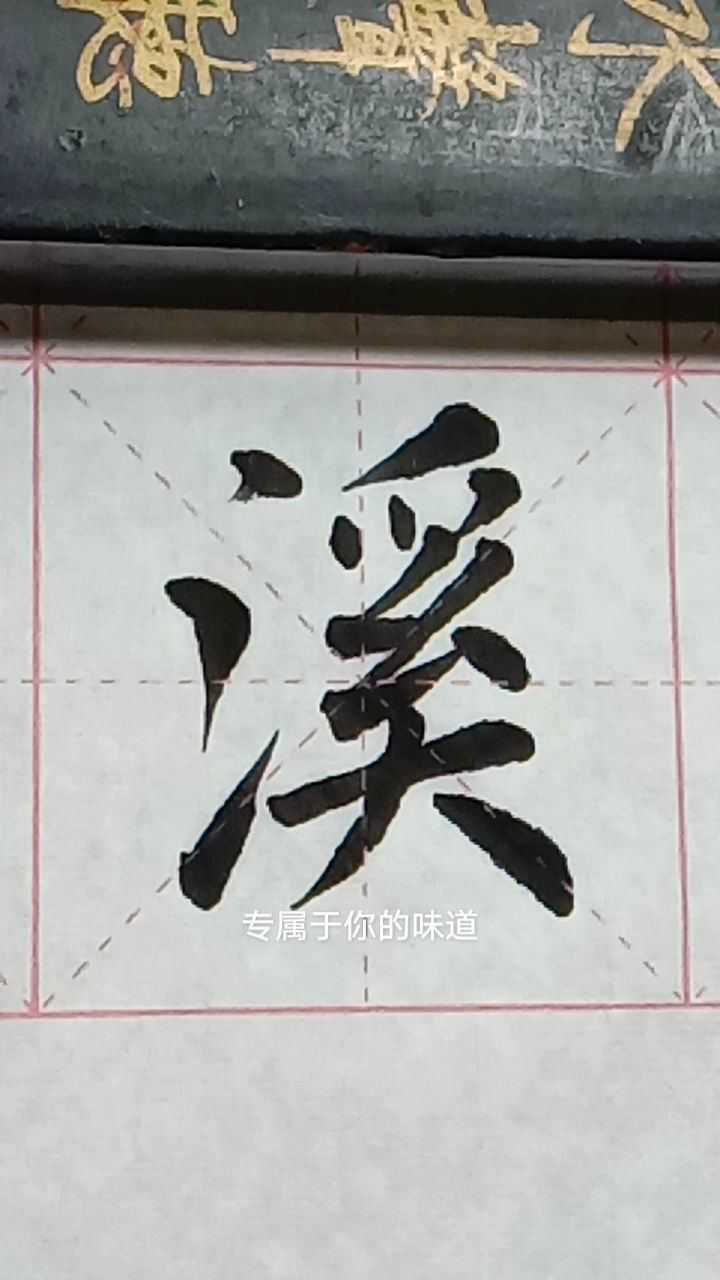 溪
专属于你的味道